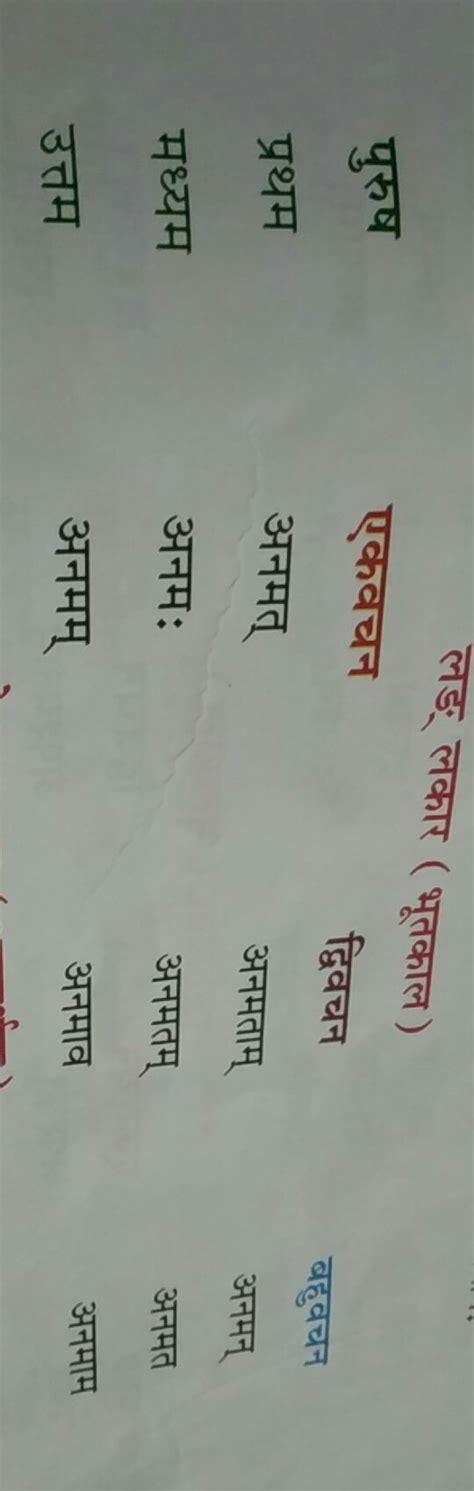 लङ् लकार ( भूतकाल )
पुरुष एकवचन द्विवचन बहुवचन
प्रथम अनमत् अनमताम् अनमन्
मध्यम अनमः अनमतम् अनमत
उत्तम अनमम् अनमाव अनमाम